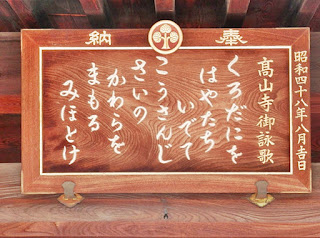 奉納
昭和四十八年八月吉日
高山寺御詠歌
くろだにを
はやたち
いでて
こうさんじ
さいの
かわらを
まもる
みほとけ